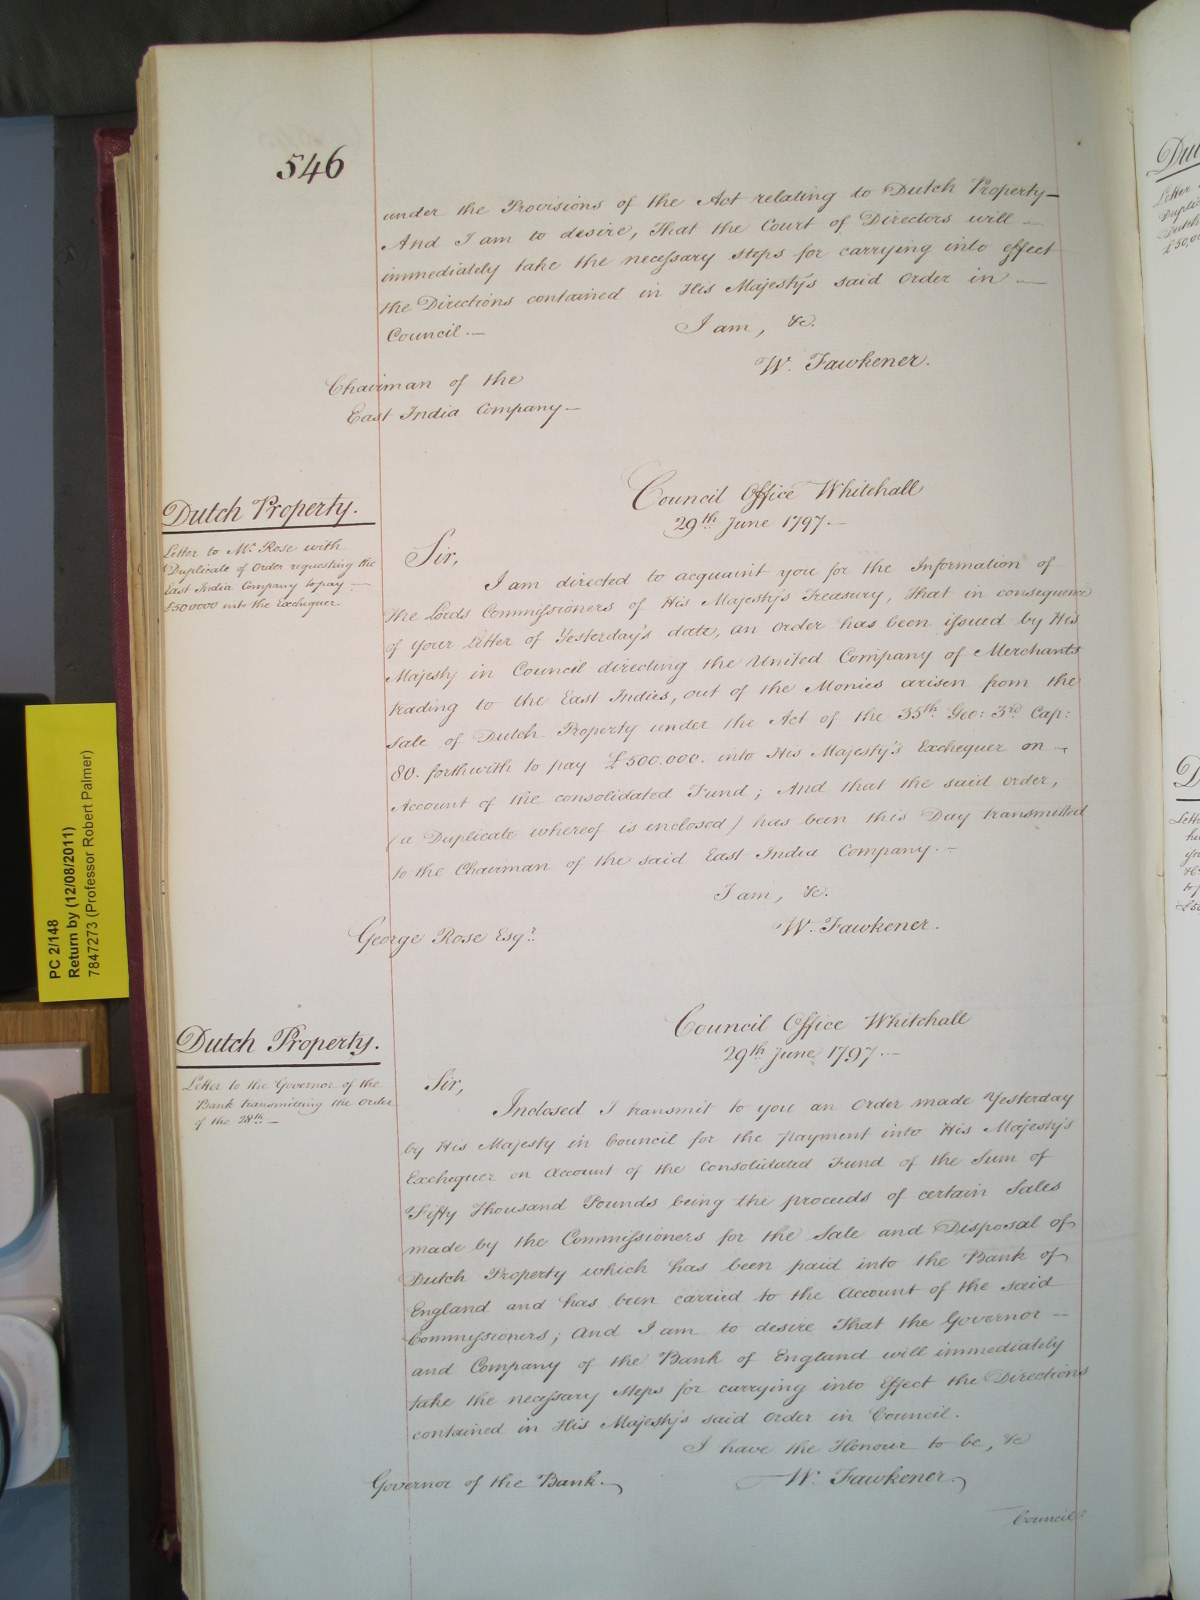 546
under the Provisions of the Act relating to Dutch Property—
And I am to desire, That the Court of Directors will —
immediately take the necessary steps for carrying into effect
the Directions contained in His Majesty's said Order in —
Council.—
I am, &c.
W. Fawkener.
Chairman of the
East India Company—
Dutch Property.
Letter to Mr. Rose with
Duplicate of Order requesting the
East India Company to pay —
£500000 into the Exchequer.
Council Office Whitehall
29th June 1797.—
Sir,
I am directed to acquaint you for the Information of
the Lords Commissioners of His Majesty's Treasury, that in consequence
of your letter of Yesterday's date, an order has been issued by His
Majesty in Council directing the United Company of Merchants
trading to the East Indies, out of the Monies arisen from the
Sale of Dutch Property under the Act of the 35th Geo: 3rd Cap:
80. forthwith to pay £500.000. into His Majesty's Exchequer on —
Account of the consolidated Fund; And that the said Order,
(a Duplicate whereof is inclosed) has been this Day transmitted
to the Chairman of the said East India Company.—
I am, &c.
W. Fawkener.
George Rose Esqr.
Dutch Property.
Letter to the Governor of the
Bank transmitting the Order
of the 28th.—
Council Office Whitehall
29th June 1797.—
Sir,
Inclosed I transmit to you an Order made Yesterday
by His Majesty in Council for the payment into His Majesty's
Exchequer on Account of the Consolidated Fund of the Sum of
Fifty Thousand Pounds being the proceeds of certain Sales
made by the Commissioners for the Sale and Disposal of
Dutch Property which has been paid into the Bank of
England and has been carried to the Account of the said
Commissioners; And I am to desire That the Governor —
and Company of the Bank of England will immediately
take the necessary steps for carrying into Effect the Directions
contained in His Majesty's said Order in Council.
I have the Honour to be, &c
W. Fawkener.
Governor of the Bank.
Council
PC 2/148
Return by (12/08/2011)
7847273 (Professor Robert Palmer)